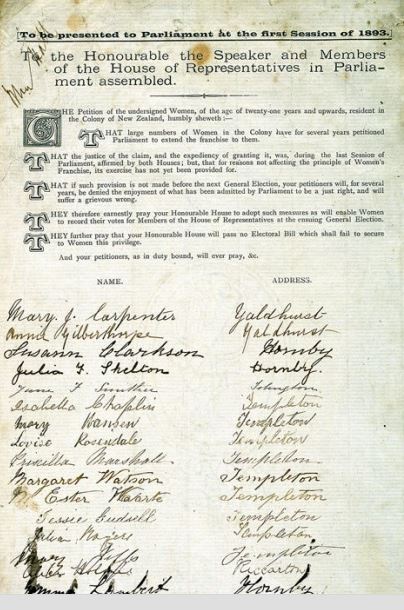 [To be presented to Parliament at the first Session of 1893.]
To the Honourable the Speaker and Members
of the House of Representatives in Parlia-
ment assembled.
THE Petition of the undersigned Women, of the age of twenty-one years and upwards, resident in
the Colony of New Zealand, humbly sheweth:—
THAT large numbers of Women in the Colony have for several years petitioned
Parliament to extend the franchise to them.
THAT the justice of the claim, and the expediency of granting it, was, during the last Session of
Parliament, affirmed by both Houses; but, that for reasons not affecting the principle of Women's
Franchise, its exercise has not yet been provided for.
THAT if such provision is not made before the next General Election, your petitioners will, for several
years, be denied the enjoyment of what has been admitted by Parliament to be a just right, and will
suffer a grievous wrong.
THEY therefore earnestly pray your Honourable House to adopt such measures as will enable Women
to record their votes for Members of the House of Representatives at the ensuing General Election.
THEY further pray that your Honourable House will pass no Electoral Bill which shall fail to secure
to Women this privilege.
And your petitioners, as in duty bound, will ever pray, &c.
NAME. ADDRESS.
Mary J. Carpenter Yaldhurst
Annie Gilberthorpe Yaldhurst
Susann Clarkson Hornby
Julia F. Skelton Hornby
Jane
Isabella Chaplin Templeton
Mary Hansen Templeton
Lovise Rosendale Templeton
Priscilla Marshall Templeton
Margaret Watson Templeton
Ester Templeton
Jessie Templeton
Templeton
Templeton
Riccarton
Lambert Hornby